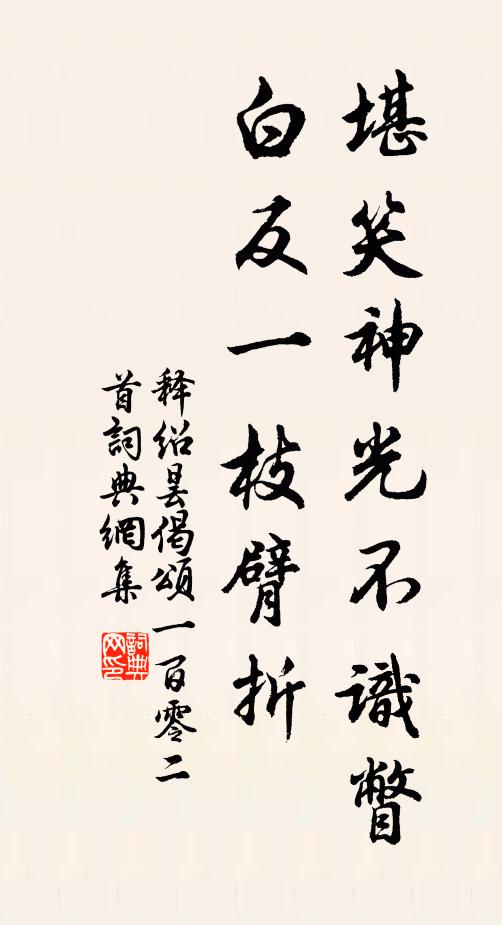 堪笑神光不識瞥
白反一枝臂折
释绍昙偈頌一百零二
首詞典網集
詞典
网印